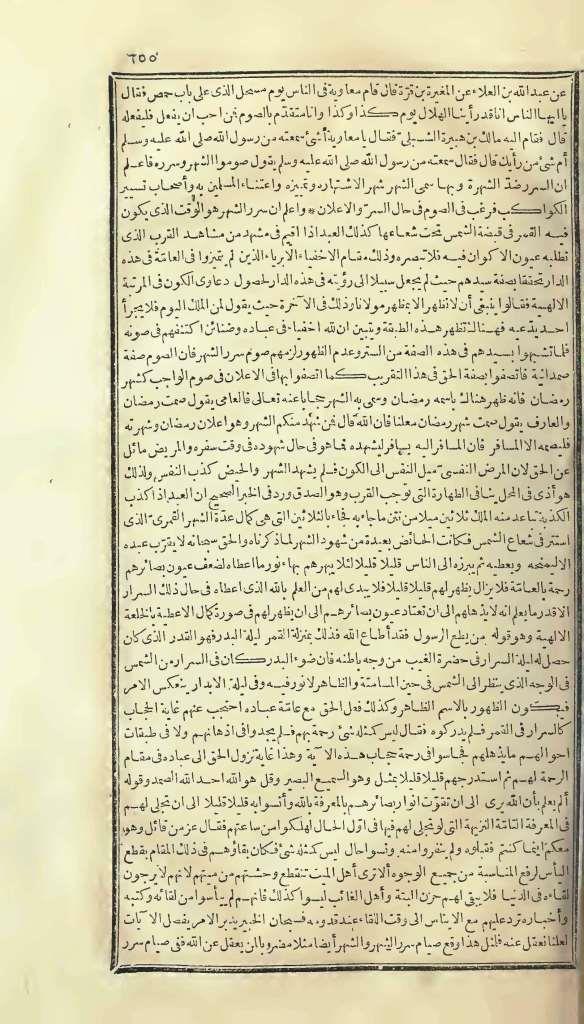 ٦٥٥
عن عبد الله بن العلاء عن المغيرة بن قرة قال قام معاوية فى الناس يوم مسحل الذى على باب حمص فقال
يا أيها الناس انا قد رأينا الهلال يوم كذا وكذا وانا متقدم بالصوم فمن احب ان يفعل فليفعله
قال فقام اليه مالك بن هبيرة السبئى فقال يا معاوية أشئ سمعته من رسول الله صلى الله عليه وسلم
أم شئ من رأيك قال فقال سمعته من رسول الله صلى الله عليه وسلم يقول صوموا الشهر وسرره فاعلم
ان السرر ضد الشهرة وبها سمى الشهر شهرا لاشتهاره وتميزه واعتناء المسلمين به وأصحاب تسيير
الكواكب فرغب فى الصوم فى حال السر والاعلان * واعلم ان سرر الشهر هو الوقت الذى يكون
فيه القمر فى قبضة الشمس تحت شعاعها كذلك العبد اذا اقيم فى مشهد من مشاهد القرب الذى
تطلبه عيون الاكوان فيه فلا تبصره وذلك مقام الاخفياء الابرياء الذين لم يتميزوا فى العامة فى هذه
الدار تحققا بصفة سيدهم حيث لم يجعل سبيلا الى رؤيته فى هذه الدار لحصول دعاوى الكون فى المرتبة
الالهية فقالوا ينبغى أن لا نظهر الا بمظهر مولانا وذلك فى الآخرة حيث يقول لمن الملك اليوم فلا يتجرأ
احد يدعيه فهنالك تظهر هذه الطبقة ويتبين ان لله اخفياء فى عباده وضنائن اكتنفهم فى صونه
فلما تشبهوا بسيدهم فى هذه الصفة من الستر وعدم الظهور لزمهم صوم سرر الشهر فان الصوم صفة
صمدانية فاتصفوا بصفة الحق فى هذا التقريب كما اتصفوا بها فى الاعلان فى صوم الواجب كشهر
رمضان فانه ظهر هنالك باسمه رمضان وسمى به الشهر حجابا عنه تعالى فالعامى يقول صمت رمضان
والعارف يقول صمت شهر رمضان معلنا فان الله قال فمن شهد منكم الشهر وهو اعلان رمضان وشهرته
فليصمه الا المسافر فان المسافر اليه يسافر ليشهده فما هو فى حال شهوده فى وقت سفره والمريض مائل
عن الحق لان المرض النفسى ميل النفس الى الكون فلم يشهد الشهر والحيض كذب النفس ولذلك
هو أذى فى المحل ينافى الطهارة التى توجب القرب وهو الصدق ورد فى الخبر الصحيح ان العبد اذا كذب
الكذبة تباعد منه الملك ثلاثين ميلا من نتن ما جاء به فجاء بالثلاثين التى هى كمال عدة الشهر القمرى الذى
استتر فى شعاع الشمس فكانت الحائض بعيدة من شهود الشهر لما ذكرناه والحق سبحانه لا يقرب عبده
الا ليمنحه ويعطيه ثم يبرزه الى الناس قليلا قليلا لئلا يبهرهم بهاء نور ما اعطاه لضعف عيون بصائرهم
رحمة بالعامة فلا يزال يظهر لهم قليلا قليلا فلا يبدى لهم من العلم بالله الذى اعطاه فى حال ذلك السرار
الا قدر ما يعلم انه لا يذهلهم الى ان تعتاد عيون بصائرهم الى ان يظهر لهم فى صورة كمال الاعطية بالخلعة
الالهية وهو قوله من يطع الرسول فقد أطاع الله فذلك بمنزلة القمر ليلة البدر فهو القدر الذى كان
حصل له ليلة السرار فى حضرة الغيب من وجه باطنه فان ضوء البدر كان فى السرار من الشمس
فى الوجه الذى ينظر الى الشمس فى حين المسامتة والظاهر لا نور فيه وفى ليلة الابدار ينعكس الامر
فيكون الظهور بالاسم الظاهر وكذلك فعل الحق مع عامة عباده احتجب عنهم غاية الحجاب
كالسرار فى القمر فلم يدركوه فقال ليس كمثله شئ رحمة بهم فلم يجدوا فى اذهانهم ولا فى طبقات
احوالهم ما يذهلهم فجاسوا فى رحمة حجاب هذه الآية وهذا غاية نزول الحق الى عباده فى مقام
الرحمة لهم ثم استدرجهم قليلا قليلا بمثل وهو السميع البصير وقل هو الله احد الله الصمد وقوله
ألم يعلم بأن الله يرى الى ان تقوت انوار بصائرهم بالمعرفة بالله وأنسوا به قليلا قليلا الى ان تجلى لهم
فى المعرفة التامة النزيهة التى لو تجلى لهم فيها فى اول الحال لهلكوا من ساعتهم فقال عز من قائل وهو
معكم اينما كنتم فقبلوه ولم ينفروا منه ونسوا حال ليس كمثله شئ فكان بقاؤهم فى ذلك المقام بقطع
اليأس لرفع المناسبة من جميع الوجوه ألا ترى أهل الميت تنقطع وحشتهم من ميتهم لانهم لا يرجون
لقاءه فى الدنيا فلا يبقى لهم حزن البتة وأهل الغائب ليسوا كذلك فانهم لم ييأسوا من لقائه وكتبه
وأخباره ترد عليهم مع الايناس الى وقت اللقاء عند قدومه فسبحان الخبير يدبر الامر يفصل الآيات
لعلنا نعقل عنه فلمثل هذا وقع صيام سرر الشهر والشهر أيضا مثلا مضروبا لمن يعقل عن الله ففى صيام سرر